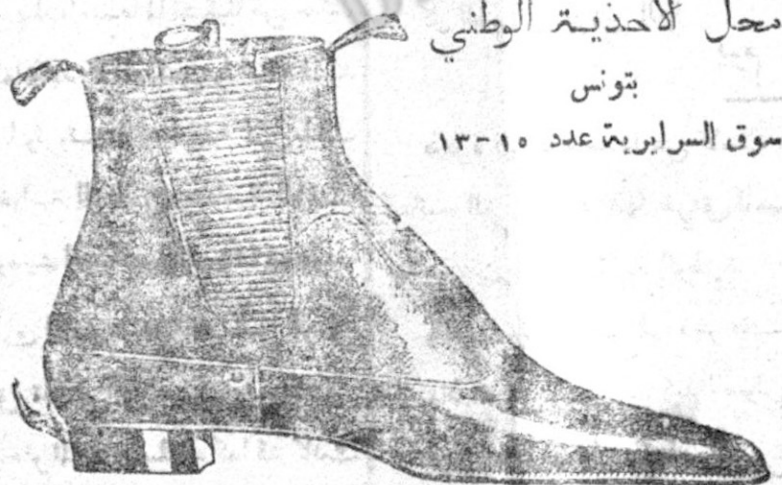 محل الاحذية الوطني
بتونس
سوق السرايرية عدد ١٥-١٣